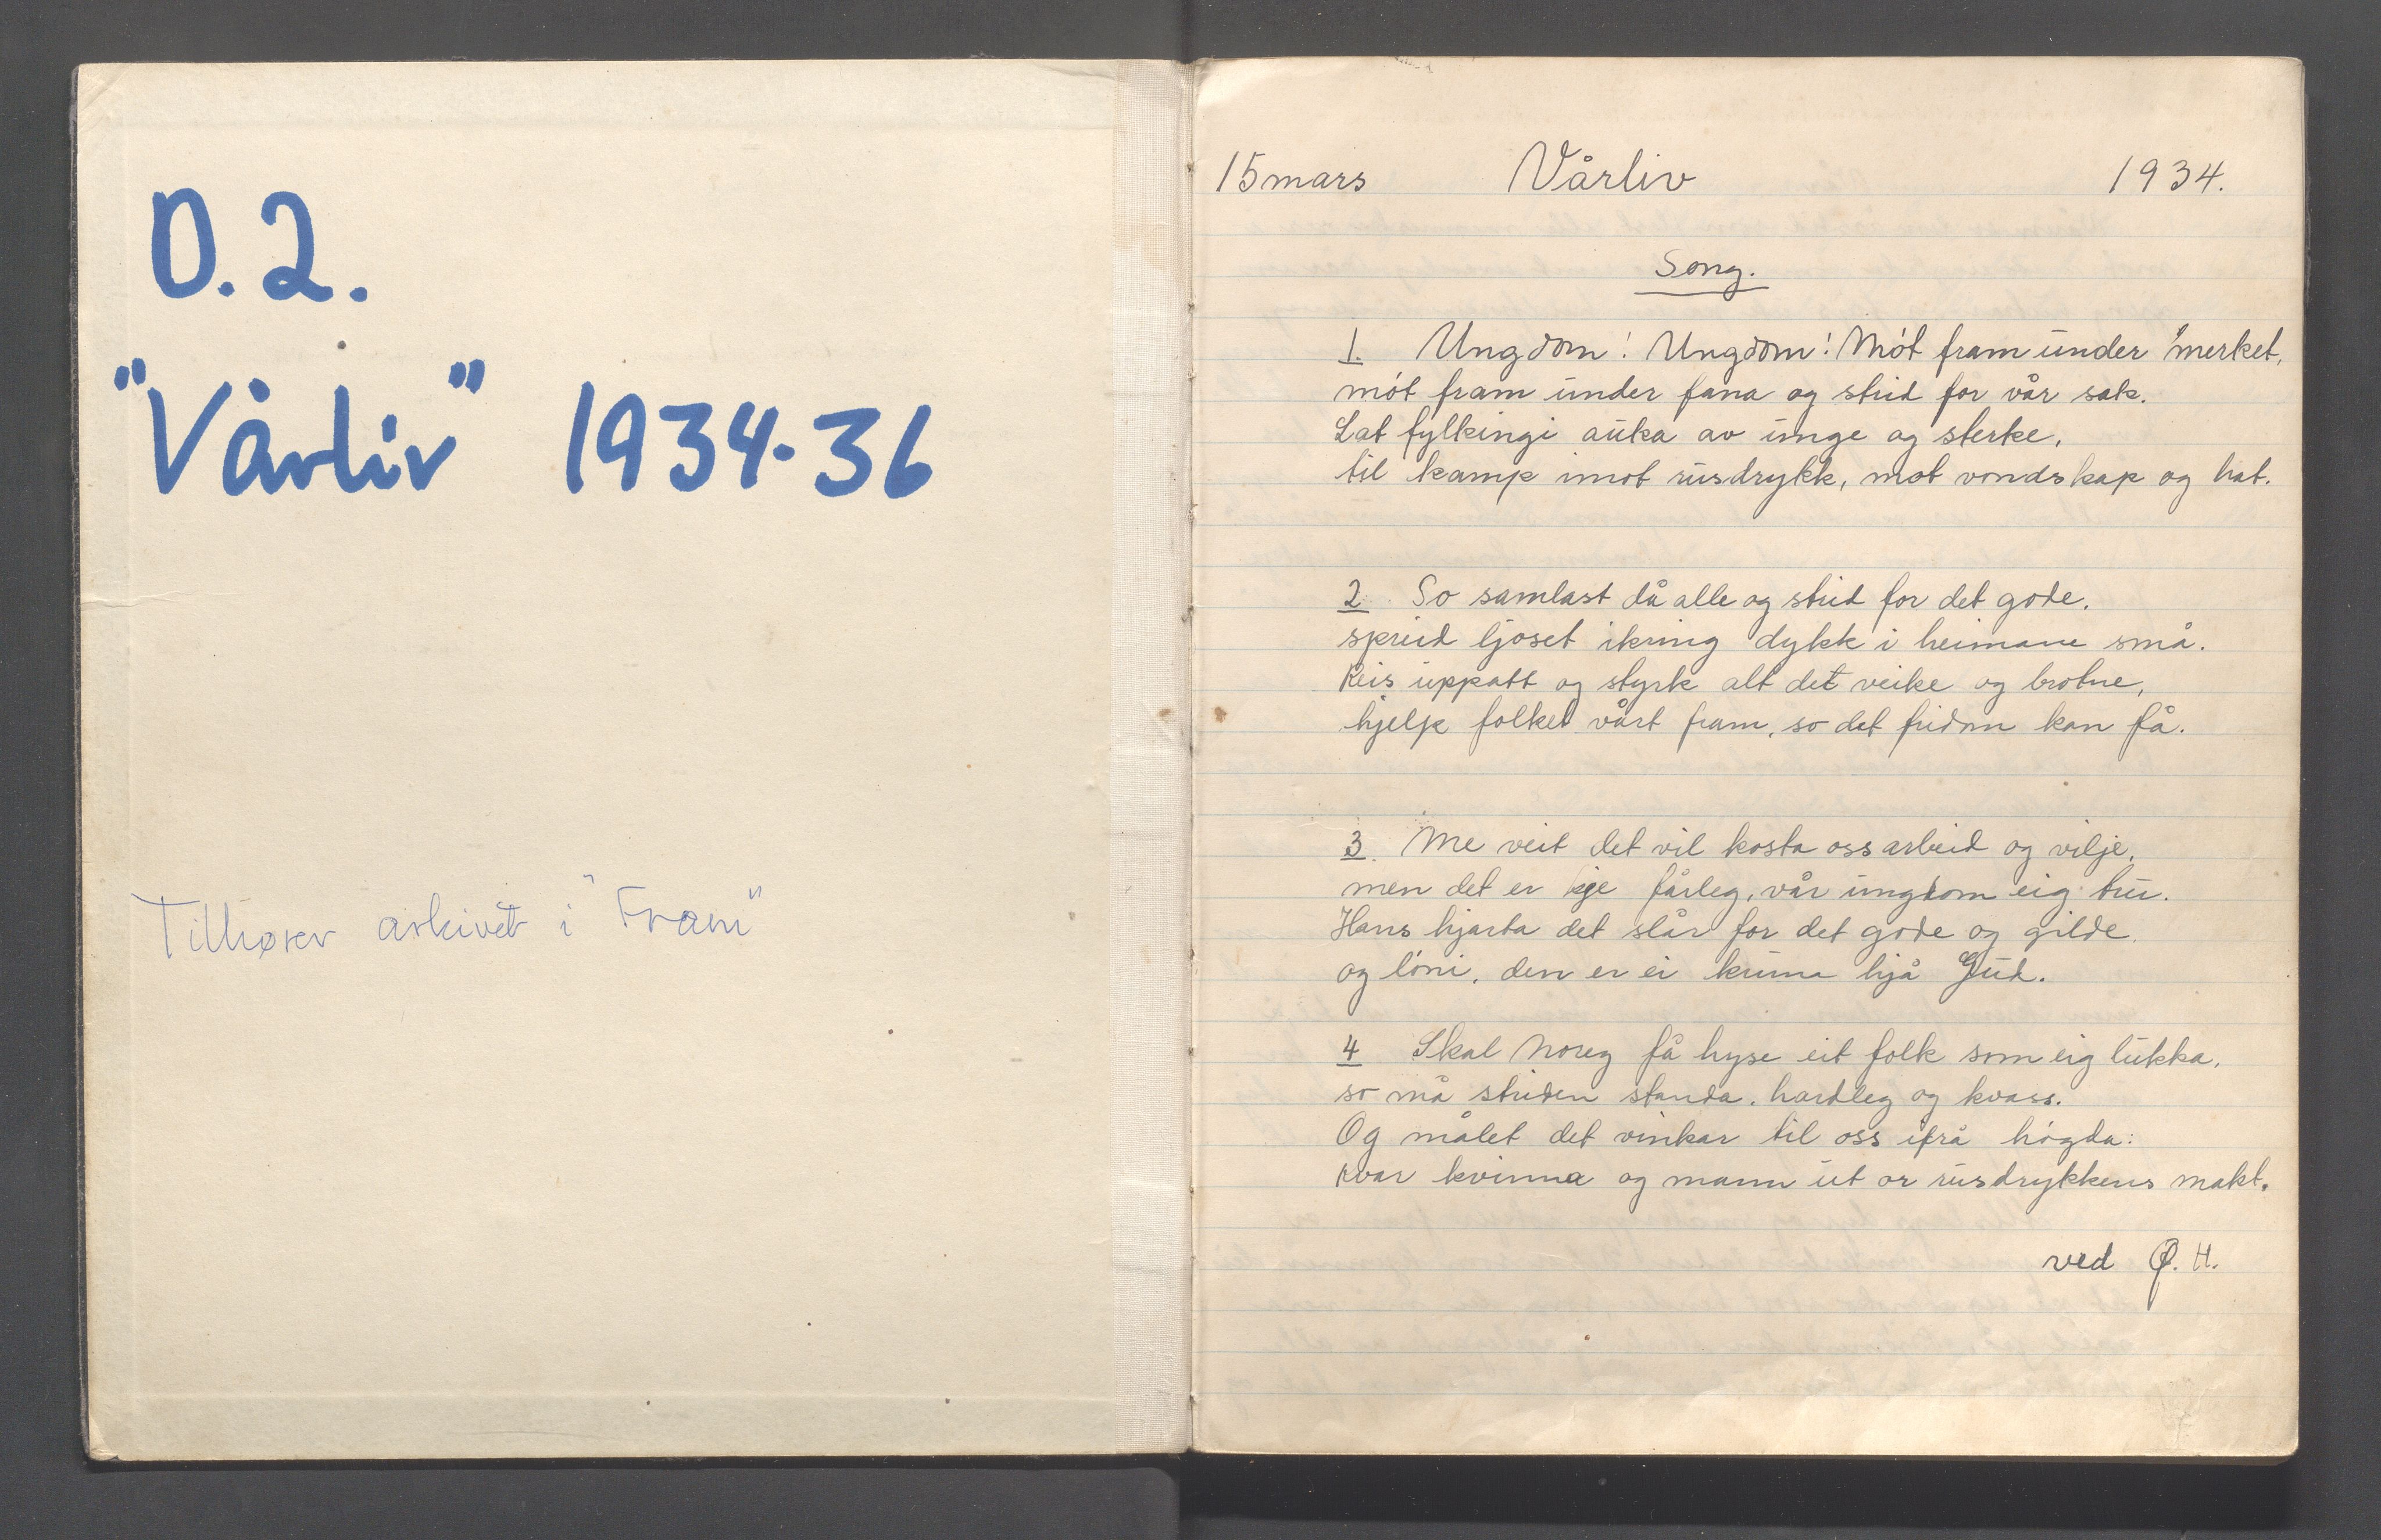 D.2.
"Vårliv" 1934-36
Tilhører arkivet i "Fram"
15 mars Vårliv 1934.
Song.
1. Ungdom! Ungdom! Møt fram under merket,
møt fram under fana og strid for vår sak.
Lat fylkingi auka av unge og sterke,
til kamp imot rusdrykk, mot vondskap og hat.
2. So samlast då alle og strid for det gode,
spreid ljoset ikring dykk i heimane små.
Reis uppatt og styrk alt det veike og brotne,
hjelp folket vårt fram, so det fridom kan få.
3. Me veit det vil kosta oss arbeid og vilje,
men det er kje fårleg, vår ungdom eig tru.
Hans hjarta det slår for det gode og gilde,
og løni, den er ei kruna hjå Gud.
4 Skal Noreg få hyse eit folk som eig lukka,
so må striden standa, hardleg og kvass.
Og målet det vinkar til oss ifrå høgda:
Kvar kvinna og mann ut or rusdrykkens makt.
ved Ø. H.